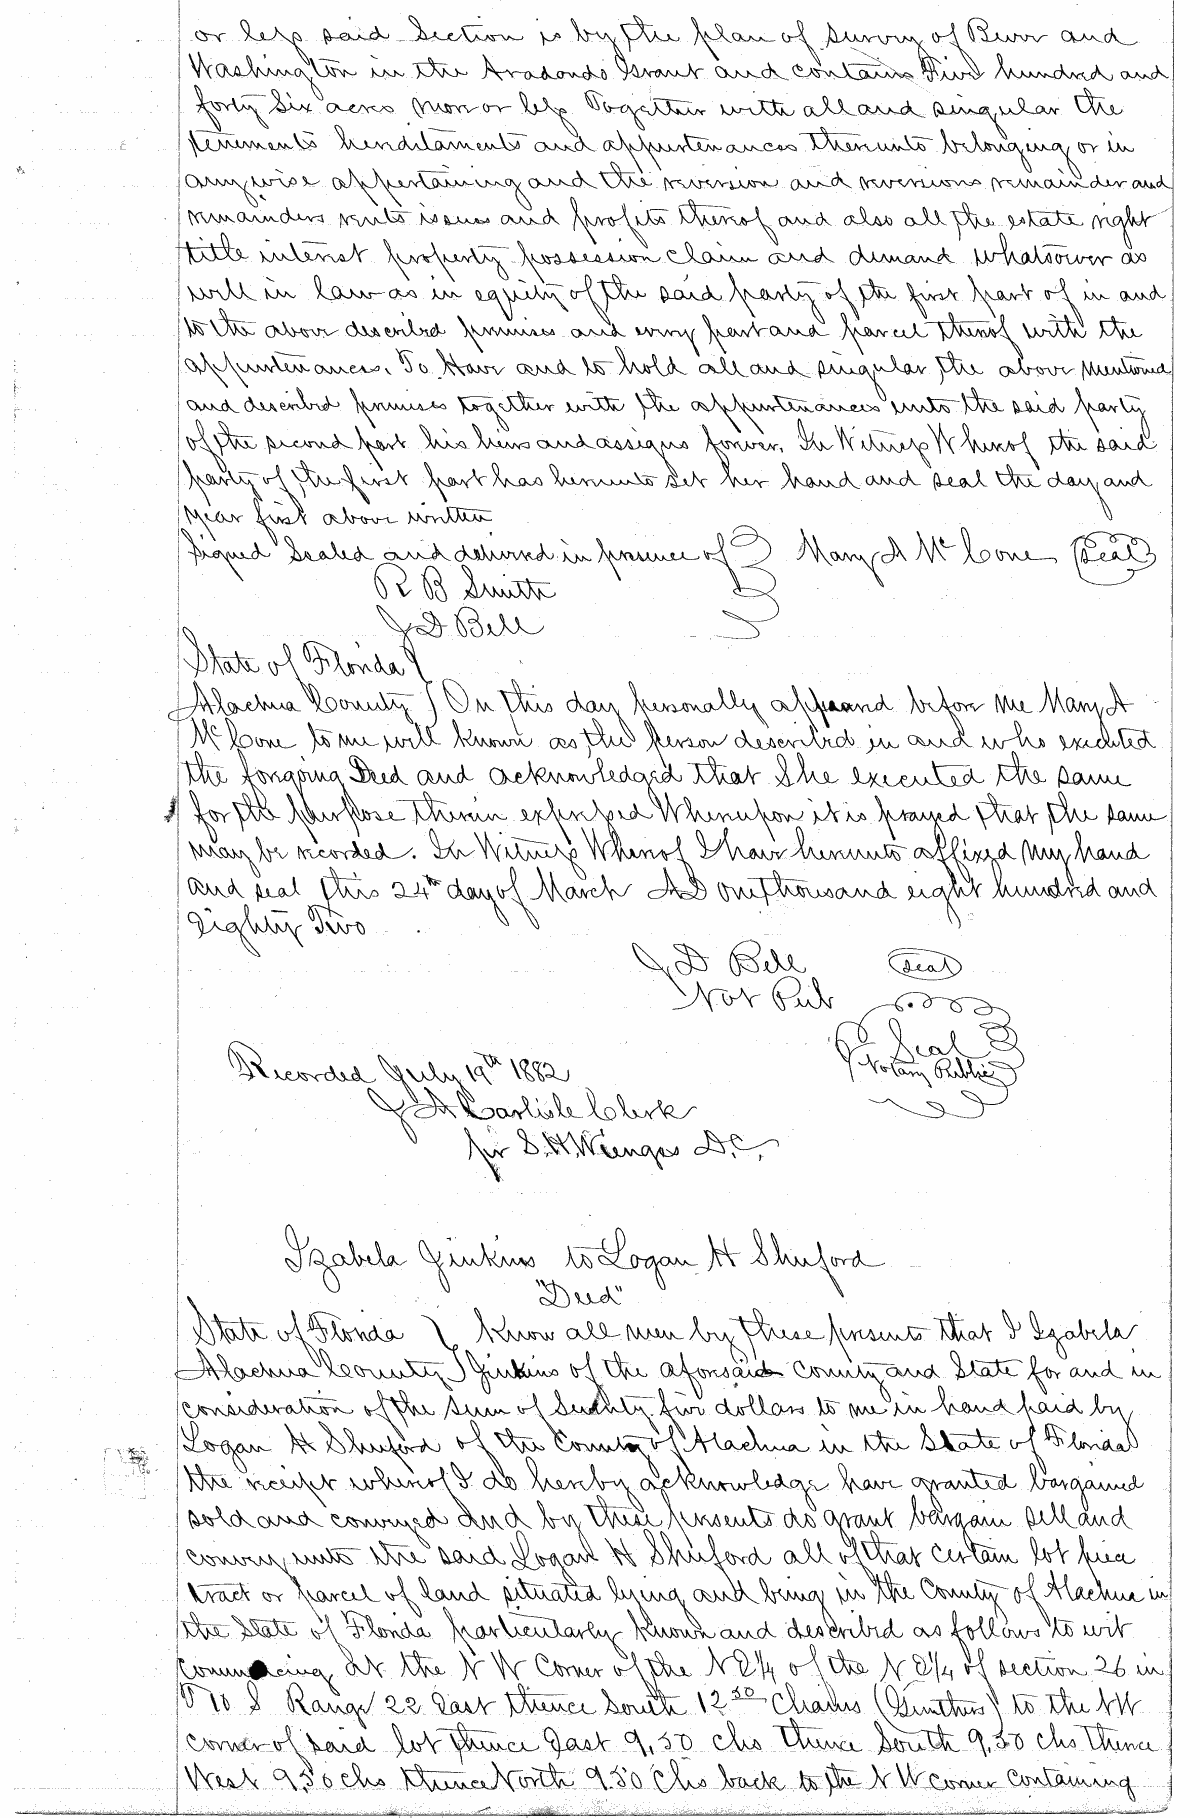 or less said Section is by the plan of survey of Burr and
Washington in the Aradondo Grant and contains Five hundred and
forty Six acres more or less Together with all and singular the
tenements hereditaments and appurtenances thereunto belonging or in
any wise appertaining and the reversion and reversions remainder and
remainders rents issues and profits thereof and also all the estate right
title interest property possession claim and demand whatsoever as
well in law as in equity of the said party of the first part of in and
to the above described premises and every part and parcel thereof with the
appurtenances. To Have and to hold all and singular the above mentioned
and described premises together with the appurtenances unto the said party
of the second part his heirs and assigns forever. In Witness Whereof the said
party of the first part has hereunto set her hand and seal the day and
year first above written
Signed Sealed and delivered in presence of } Mary A McCone (Seal)
R B Smith
J D Bell
State of Florida }
Alachua County } On this day personally appeared before me Mary A
McCone to me well known as the person described in and who executed
the forgoing Deed and acknowledged that She executed the same
for the purpose therein expressed Whereupon it is prayed that the same
may be recorded. In Witness Whereof I have hereunto affixed my hand
and seal this 24th day of March AD one thousand eight hundred and
Eighty Two
J D Bell (Seal)
Not Pub
Seal
Notary Public
Recorded July 19th 1882
J A Carlisle Clerk
pr S. H. Wienges D.C.
Izabela Jinkins to Logan H Shuford
"Deed"
State of Florida } Know all men by these presents that I Izabela
Alachua County } Jinkins of the aforesaid County and State for and in
consideration of the sum of Seventy five dollars to me in hand paid by
Logan H Shuford of the County of Alachua in the State of Florida
the receipt whereof I do hereby acknowledge have granted bargained
sold and conveyed and by these presents do grant bargain sell and
convey unto the said Logan H Shuford all of that certain lot piece
tract or parcel of land situated lying and being in the County of Alachua in
the State of Florida particularly known and described as follows to wit
commencing at the N W Corner of the N E 1/4 of the N E 1/4 of section 26 in
T 10 S Range 22 East thence South 12 50 Chains (Gunthers) to the NW
corner of said lot thence East 9,50 chs thence South 9,50 chs thence
West 9,50 chs thence North 9.50 Chs back to the N W corner containing